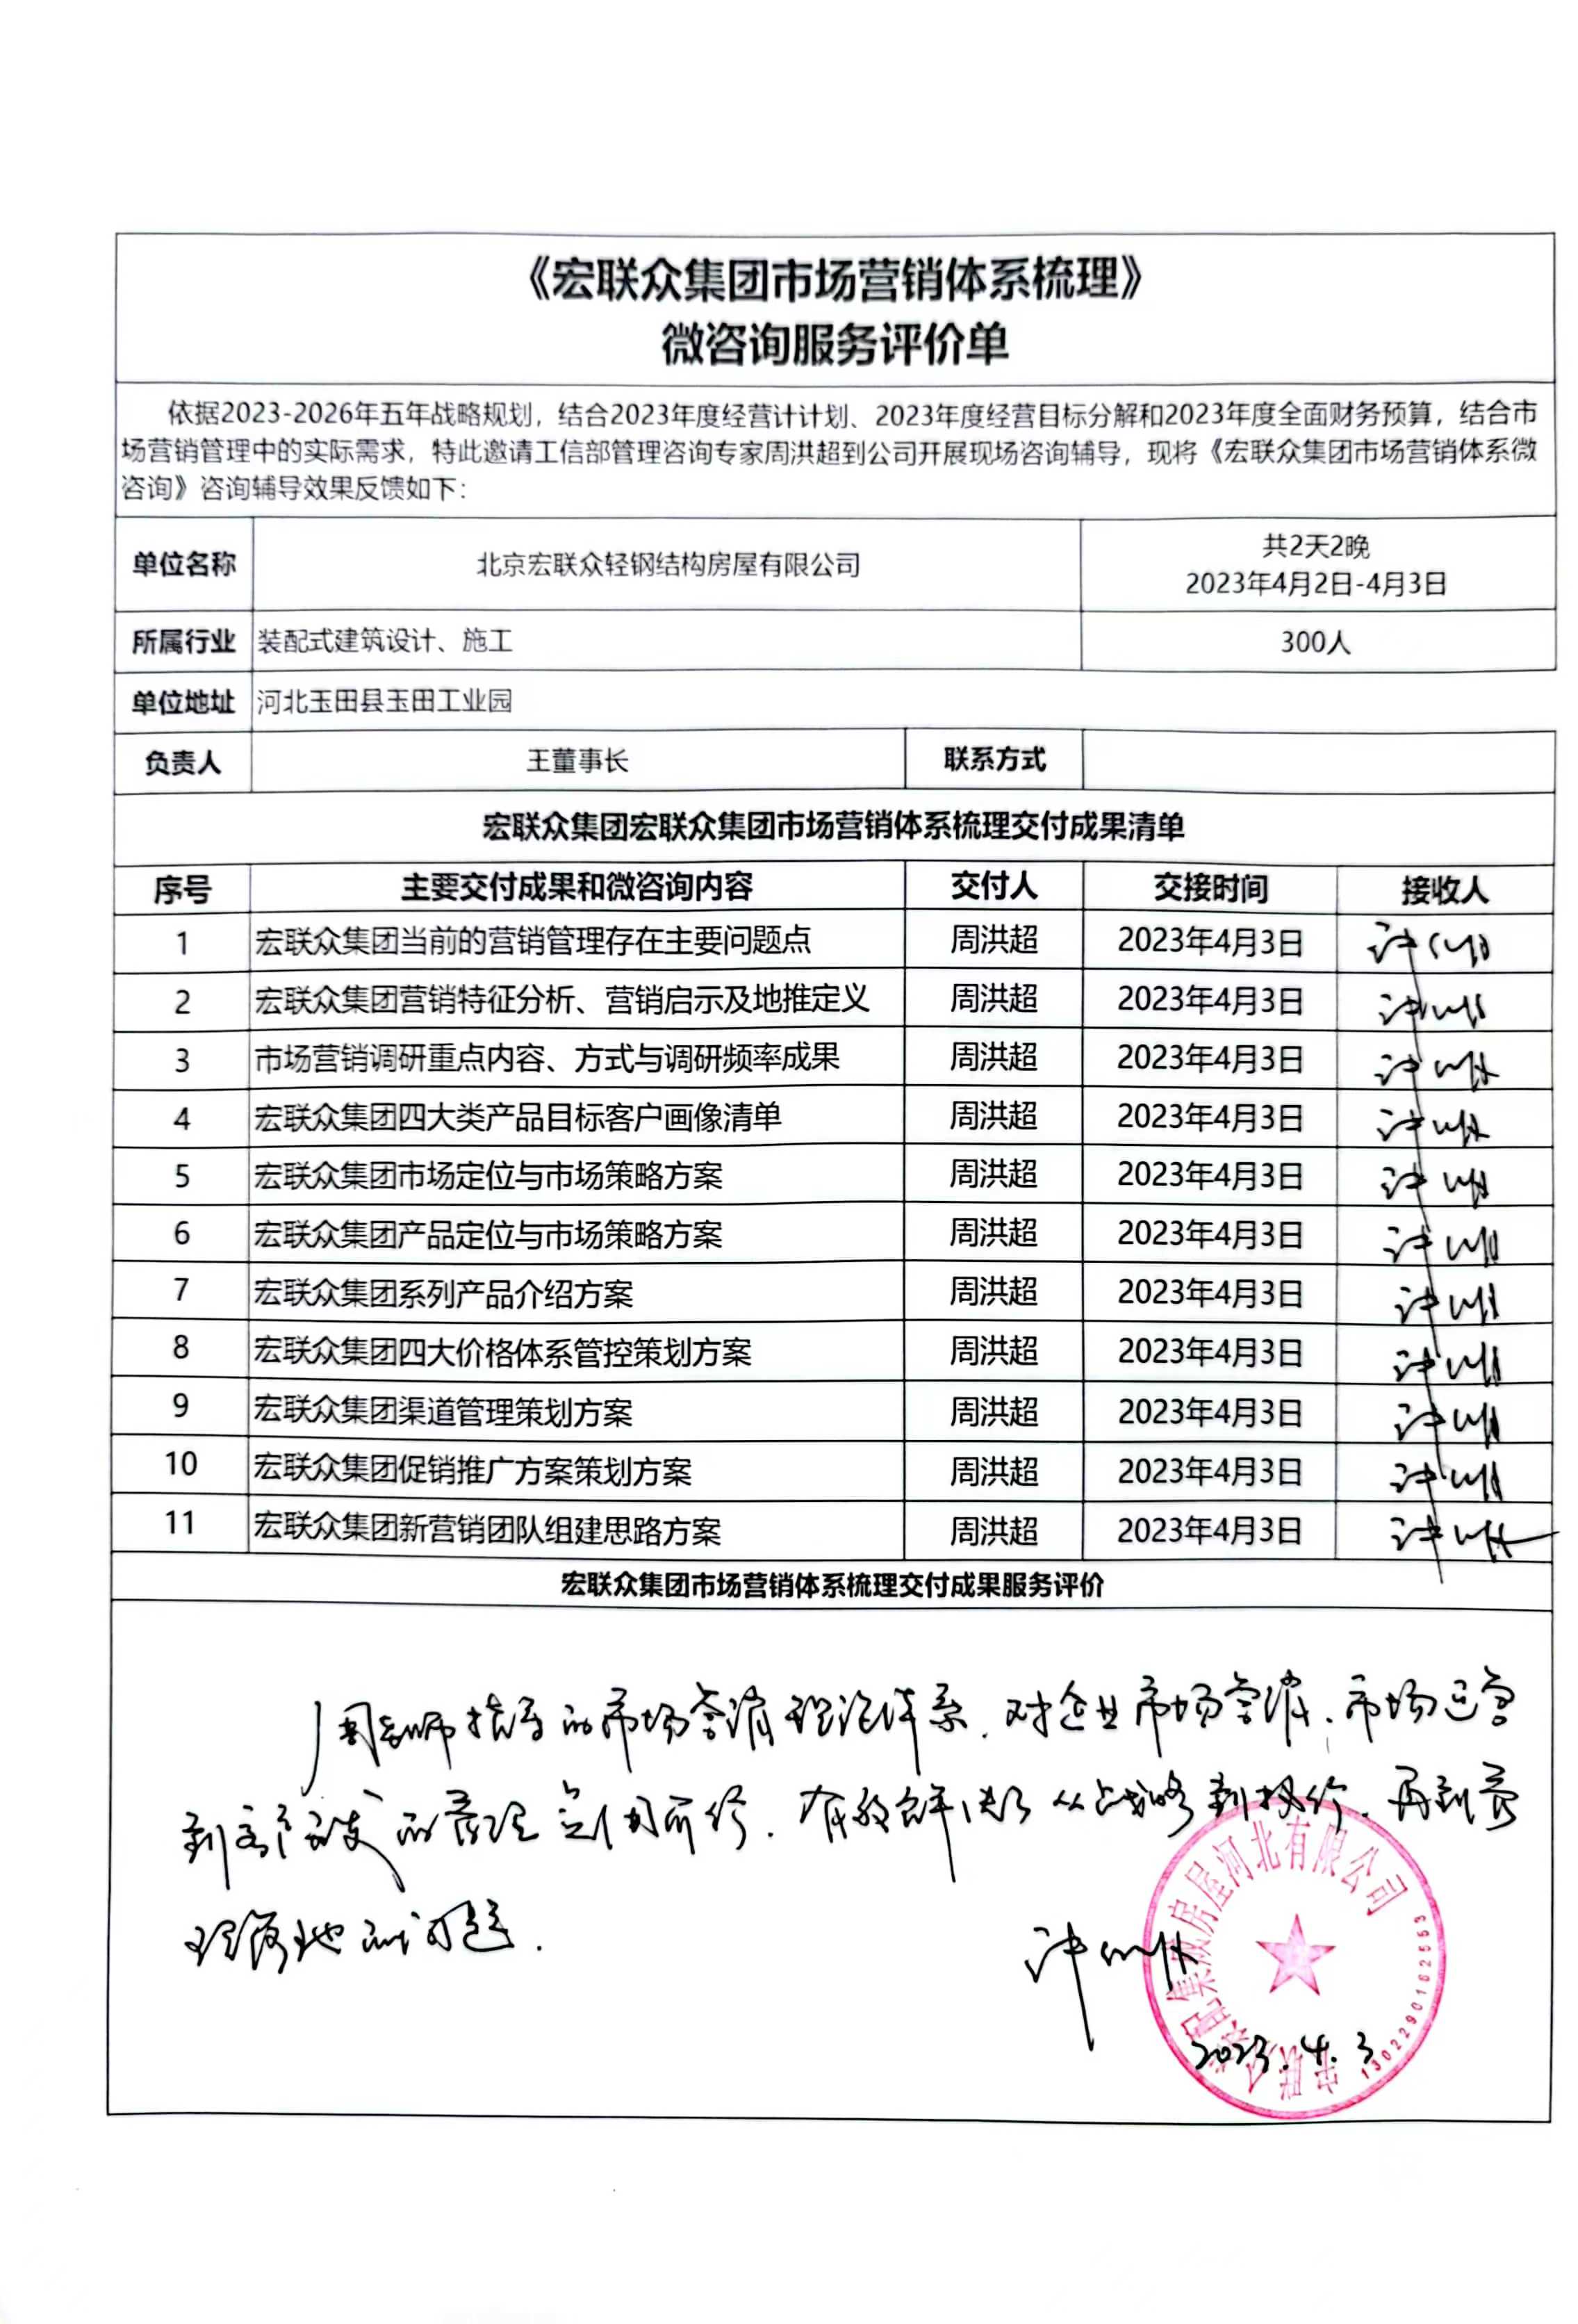 《宏联众集团市场营销体系梳理》
微咨询服务评价单
依据2023-2026年五年战略规划，结合2023年度经营计计划、2023年度经营目标分解和2023年度全面财务预算，结合市
场营销管理中的实际需求，特此邀请工信部管理咨询专家周洪超到公司开展现场咨询辅导，现将《宏联众集团市场营销体系微
咨询》咨询辅导效果反馈如下：
单位名称 北京宏联众轻钢结构房屋有限公司 共2天2晚
2023年4月2日-4月3日
所属行业 装配式建筑设计、施工 300人
单位地址 河北玉田县玉田工业园
负责人 王董事长 联系方式
宏联众集团宏联众集团市场营销体系梳理交付成果清单
序号 主要交付成果和微咨询内容 交付人 交接时间 接收人
1 宏联众集团当前的营销管理存在主要问题点 周洪超 2023年4月3日
2 宏联众集团营销特征分析、营销启示及地推定义 周洪超 2023年4月3日
3 市场营销调研重点内容、方式与调研频率成果 周洪超 2023年4月3日
4 宏联众集团四大类产品目标客户画像清单 周洪超 2023年4月3日
5 宏联众集团市场定位与市场策略方案 周洪超 2023年4月3日
6 宏联众集团产品定位与市场策略方案 周洪超 2023年4月3日
7 宏联众集团系列产品介绍方案 周洪超 2023年4月3日
8 宏联众集团四大价格体系管控策划方案 周洪超 2023年4月3日
9 宏联众集团渠道管理策划方案 周洪超 2023年4月3日
10 宏联众集团促销推广方案策划方案 周洪超 2023年4月3日
11 宏联众集团新营销团队组建思路方案 周洪超 2023年4月3日
宏联众集团市场营销体系梳理交付成果服务评价
周老师指导的市场营销理论体系，对企业市场营销、市场运营
到客户开发的管理 有效解决了从战略到 再到管
理落地的问题．
集成房屋河北有限公司
1302290162553
2023.4.3